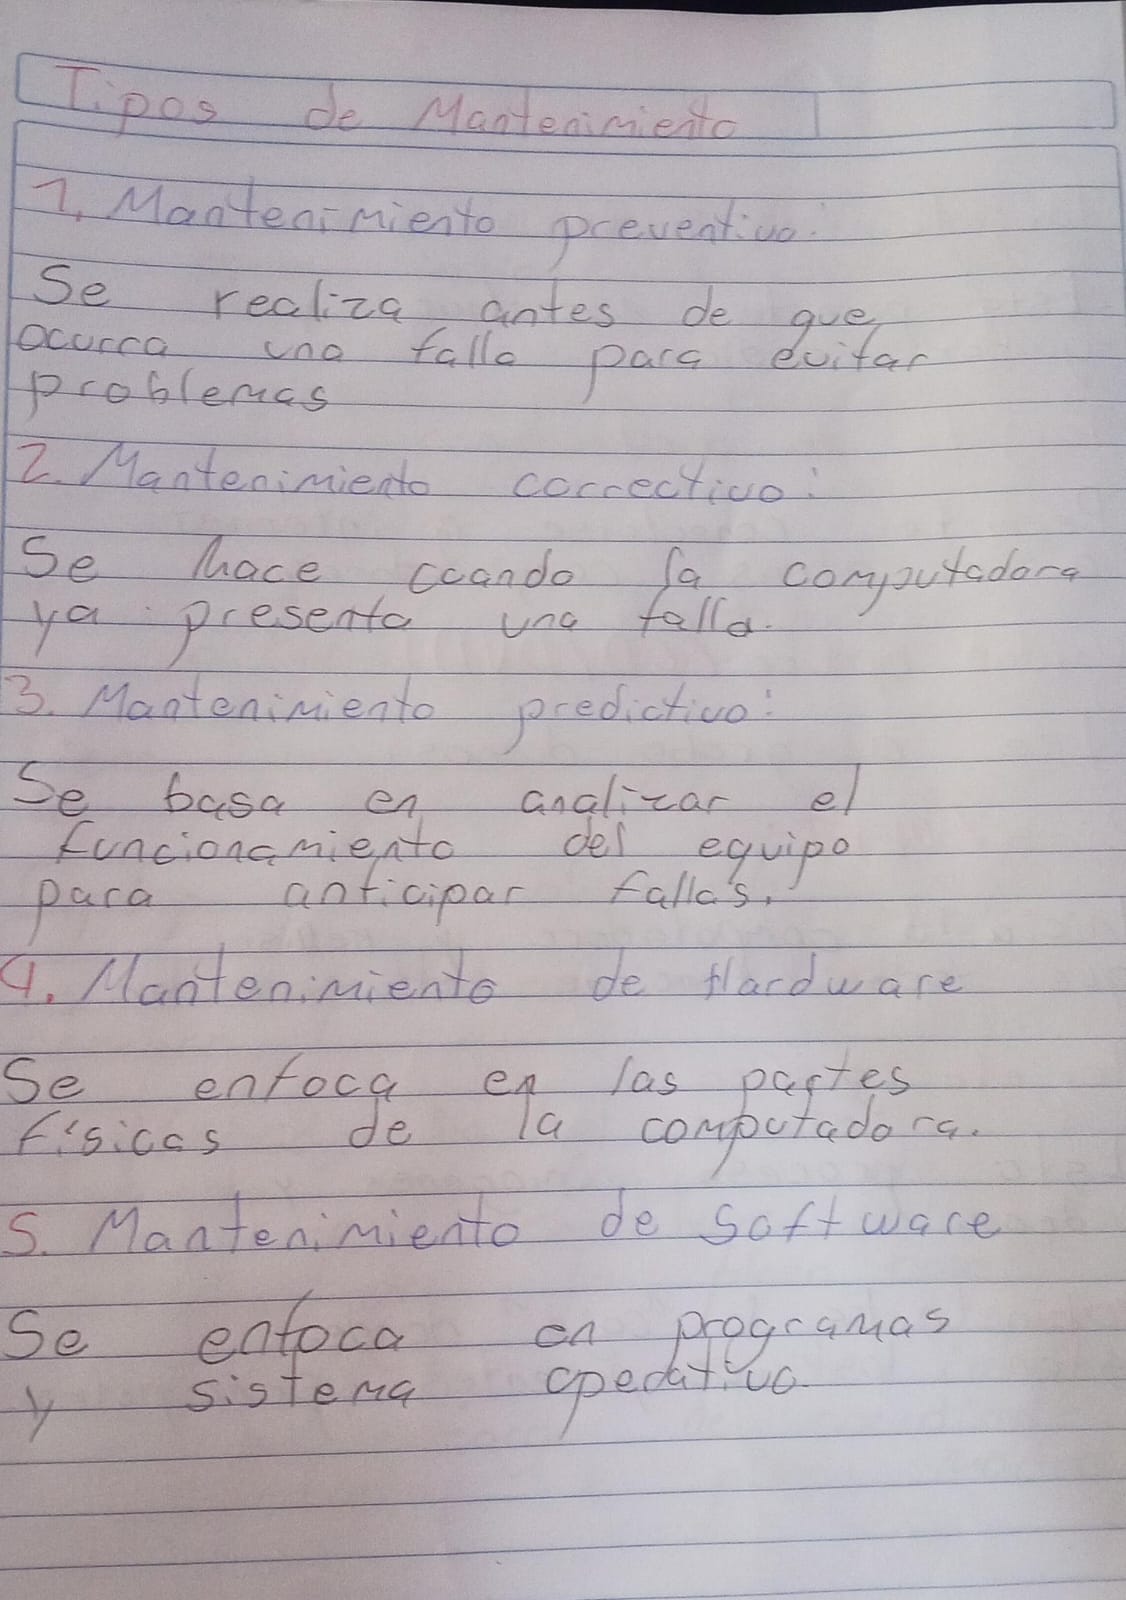 Tipos de Mantenimiento
1. Mantenimiento preventivo:
Se realiza antes de que
ocurra una falla para evitar
problemas
2. Mantenimiento correctivo:
Se hace cuando la computadora
ya presenta una falla.
3. Mantenimiento predictivo:
Se basa en analizar el
funcionamiento del equipo
para anticipar fallas.
4. Mantenimiento de Hardware
Se enfoca en las partes
físicas de la computadora.
5. Mantenimiento de Software
Se enfoca en programas
y sistema operativo